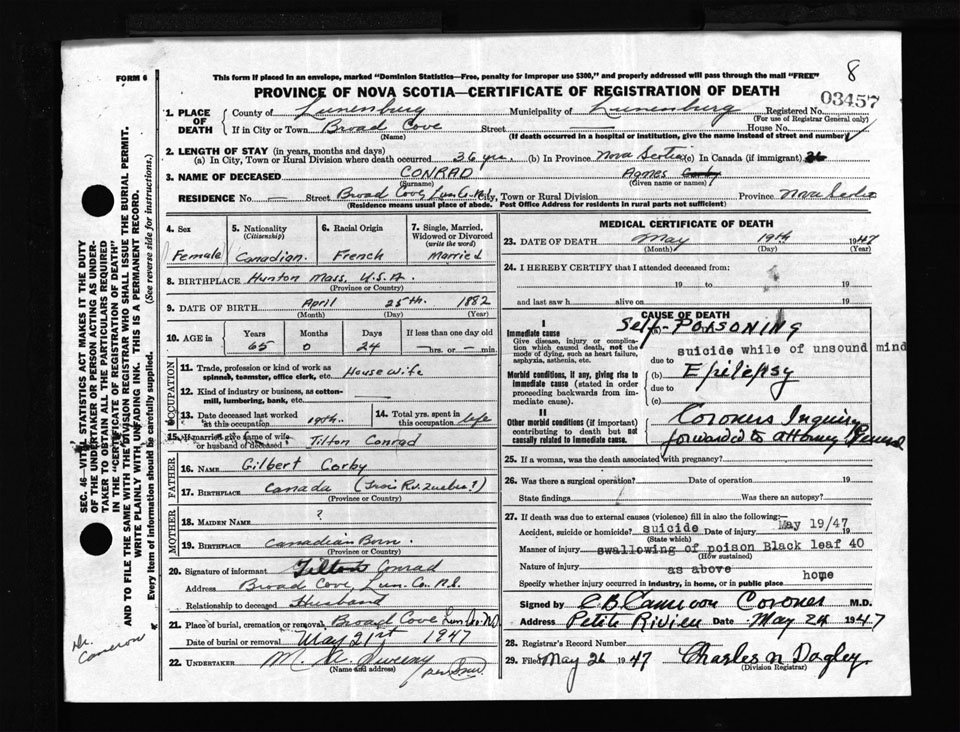 8
FORM 6
This form if placed in an envelope, marked "Dominion Statistics—Free, penalty for improper use $300," and properly addressed will pass through the mail "FREE"
PROVINCE OF NOVA SCOTIA—CERTIFICATE OF REGISTRATION OF DEATH
03457
1. PLACE OF DEATH
County of Lunenburg Municipality of Lunenburg Registered No.
(For use of Registrar General only)
If in City or Town Broad Cove Street — House No.
(Name) (If death occurred in a hospital or institution, give the name instead of street and number)
2. LENGTH OF STAY (in years, months and days)
(a) In City, Town or Rural Division where death occurred 36 yrs. (b) In Province Nova Scotia (c) In Canada (if immigrant) 36
3. NAME OF DECEASED CONRAD Agnes Corby
(Surname) (Given name or names)
RESIDENCE No. — Street Broad Cove, Lun. Co. N.S. City, Town or Rural Division Province Nova Scotia
(Residence means usual place of abode. Post Office Address for residents in rural parts not sufficient)
4. Sex
Female
5. Nationality
(Citizenship)
Canadian.
6. Racial Origin
French
7. Single, Married, Widowed or Divorced
(write the word)
Married
8. BIRTHPLACE Hunton Mass. U.S.A.
(Province or Country)
9. DATE OF BIRTH April 25th. 1882
(Month) (Day) (Year)
10. AGE in
Years Months Days If less than one day old
65 0 24 — hrs. or — min.
OCCUPATION
11. Trade, profession or kind of work as spinner, teamster, office clerk, etc. Housewife
12. Kind of industry or business, as cotton-mill, lumbering, bank, etc.
13. Date deceased last worked at this occupation 19th.
14. Total yrs. spent in this occupation life
15. If married give name of wife or husband of deceased Tilton Conrad
FATHER
16. NAME Gilbert Corby
17. BIRTHPLACE Canada (Trois Riv. Quebec?)
(Province or Country)
MOTHER
18. MAIDEN NAME ?
19. BIRTHPLACE Canadian Born.
(Province or Country)
20. Signature of informant Tilton Conrad
Address Broad Cove, Lun. Co. N.S.
Relationship to deceased Husband
21. Place of burial, cremation or removal Broad Cove Lun. Co. N.S.
Date of burial or removal May 21st 1947
22. UNDERTAKER M. A. Sweeny
(Name and address)
MEDICAL CERTIFICATE OF DEATH
23. DATE OF DEATH May 19th 1947
(Month) (Day) (Year)
24. I HEREBY CERTIFY that I attended deceased from:
19 to 19
and last saw h alive on 19
CAUSE OF DEATH
I
Immediate cause
Give disease, injury or complication which caused death, not the mode of dying, such as heart failure, asphyxia, asthenia, etc.
(a) Self-POISONING
due to suicide while of unsound mind
Morbid conditions, if any, giving rise to immediate cause (stated in order proceeding backwards from immediate cause).
(b) Epilepsy
due to
(c)
II
Other morbid conditions (if important) contributing to death but not causally related to immediate cause.
Coroners Inquiry
forwarded to attorney General
25. If a woman, was the death associated with pregnancy?
26. Was there a surgical operation? Date of operation 19
State findings Was there an autopsy?
27. If death was due to external causes (violence) fill in also the following:—
Accident, suicide or homicide? suicide Date of injury May 19/47
(State which)
Manner of injury swallowing of poison Black leaf 40
(How sustained)
Nature of injury as above
Specify whether injury occurred in industry, in home, or in public place home
Signed by C.B. Cameron Coroner M.D.
Address Petite Riviere Date May 24 1947
28. Registrar's Record Number
29. Filed May 26 1947 Charles N Dagley.
(Division Registrar)
SEC. 46—VITAL STATISTICS ACT MAKES IT THE DUTY
OF THE UNDERTAKER OR PERSON ACTING AS UNDER-
TAKER TO OBTAIN ALL THE PARTICULARS REQUIRED
IN THE "CERTIFICATE OF REGISTRATION OF DEATH"
AND TO FILE THE SAME WITH THE DIVISION REGISTRAR WHO SHALL ISSUE THE BURIAL PERMIT.
WRITE PLAINLY WITH UNFADING INK. THIS IS A PERMANENT RECORD.
Every item of information should be carefully supplied. (See reverse side for instructions.)
Dr.
Cameron